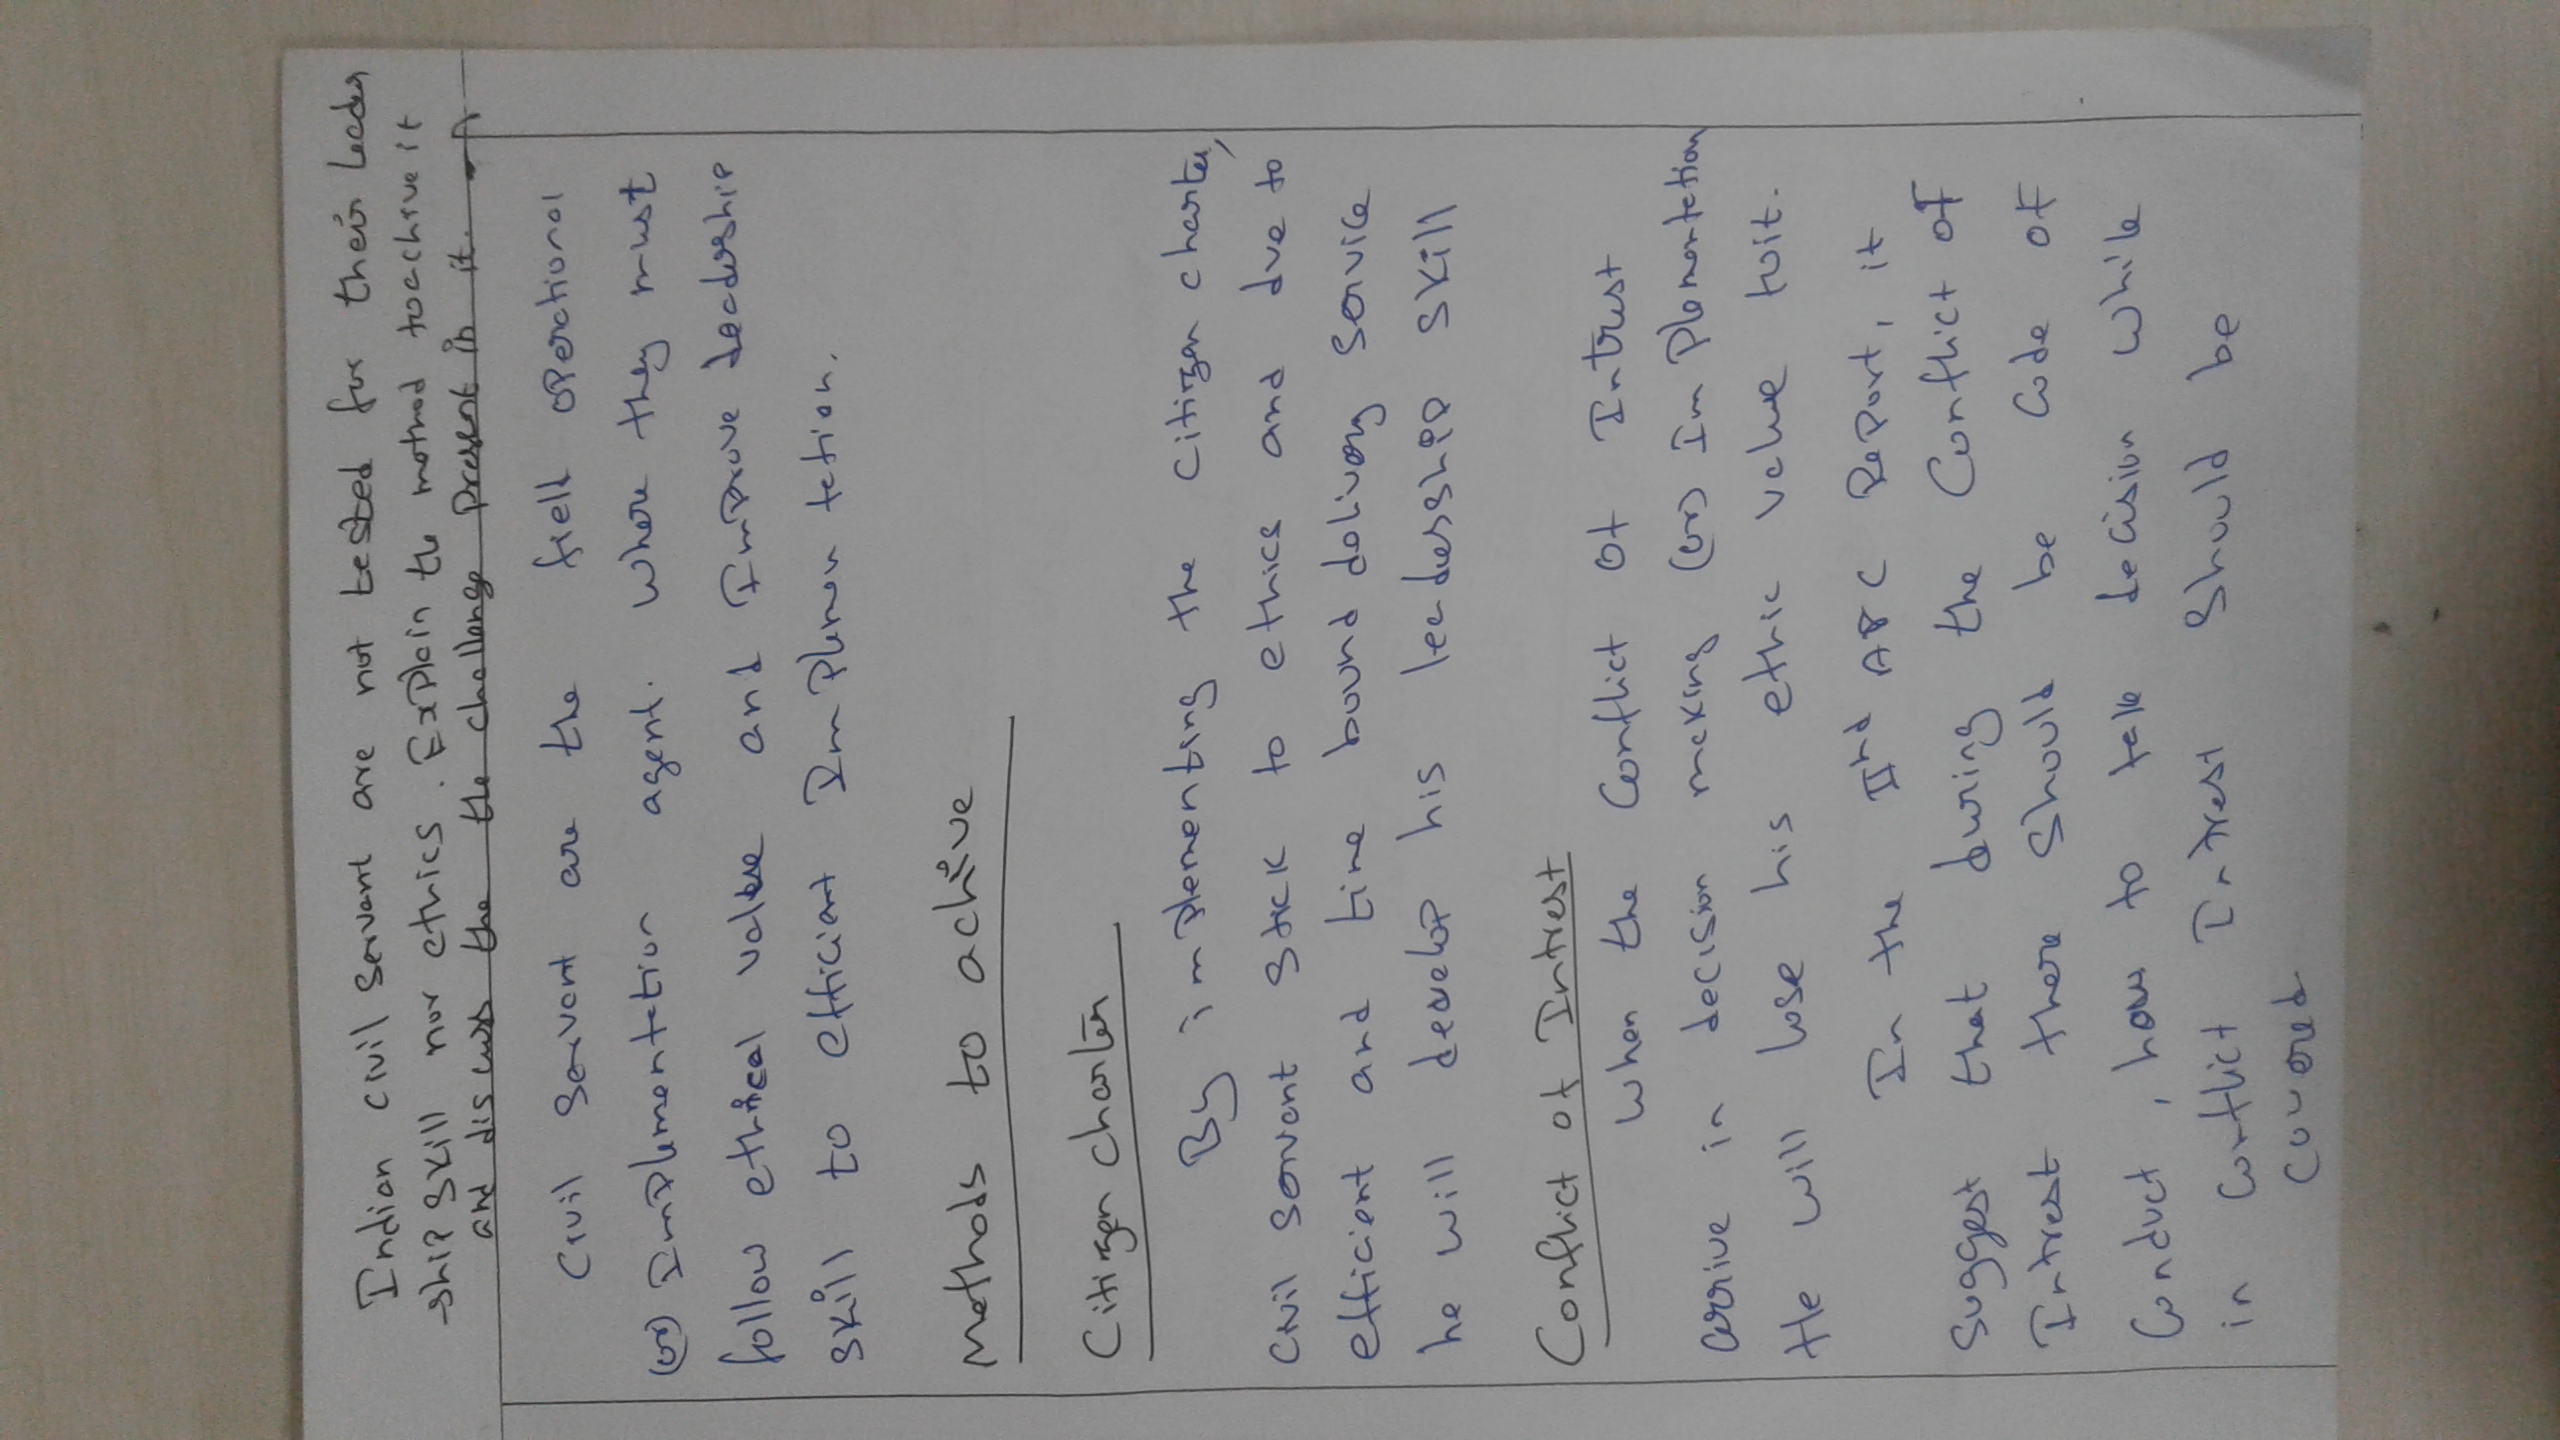 Indian civil servant are not tested for their leader
-ship skill nor ethics. Explain the mothod toachive it
and discuss the the challenge present in it.
Civil Servant are the field operational
(or) Implementation agent. where they must
follow ethical value and Improve leadership
skill to efficiant Implemen tation.
methods to achive
Citizen charter
By implementing the citizen charter,
civil servant stick to ethics and due to
efficient and time bound delivery service
he will develop his leadership skill
Conflict of Intrest
when the conflict of Intrest
arrive in decision making (or) Implementation
He will lose his ethic value
In the IInd ARC Report, it
suggest that during the Conflict of
Intrest there should be code of
Conduct, how to take decision while
in conflict Intrest should be
covered